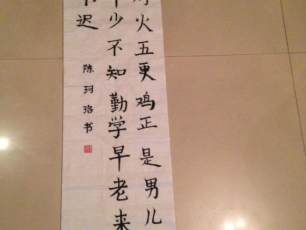 灯火五更鸡正是男儿
少不知勤学早老来
迟
陈珂洛书